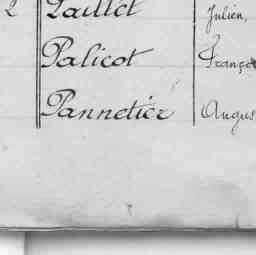 2 Paillet Julien,
Palicot Franço
Pannetier Augus